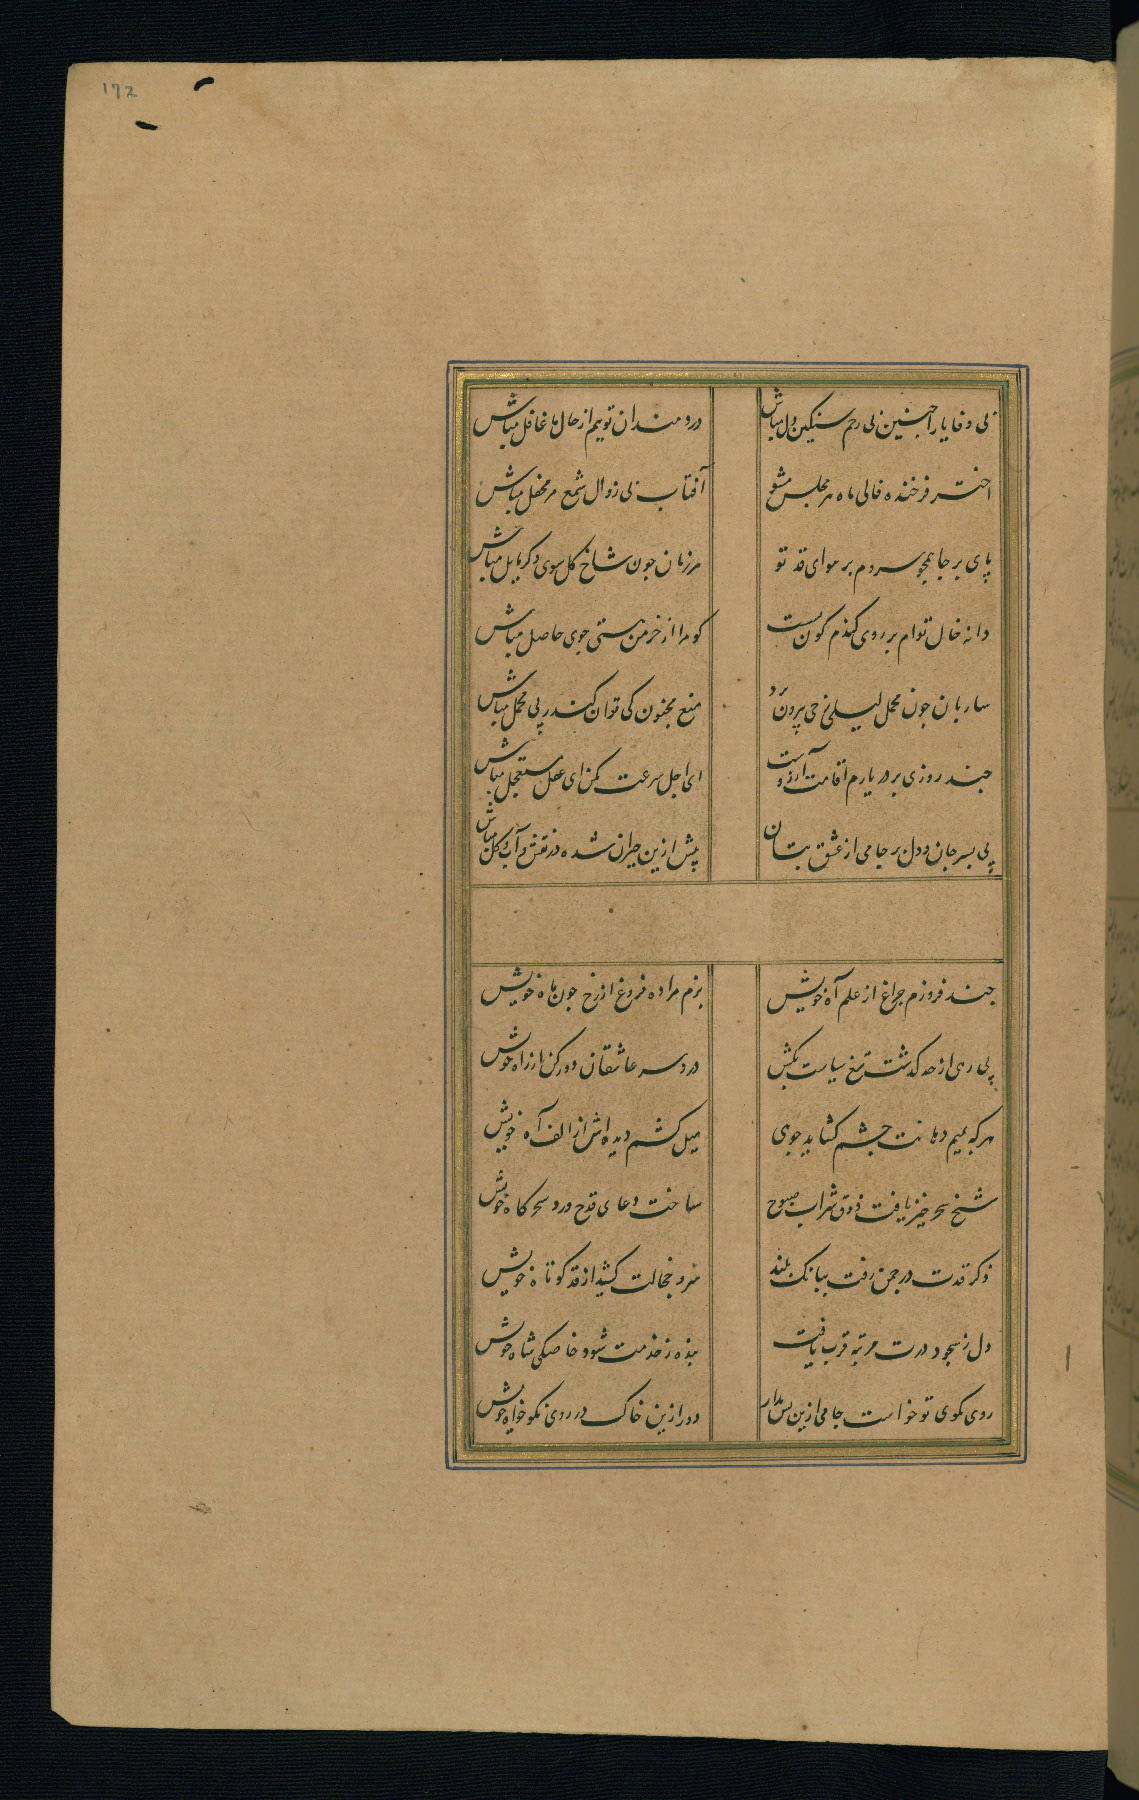 ۱۷۲
بی وفا یارا چنین بی رحم سنگین دل مباش
دردمندان توییم از حال ما غافل مباش
اختر فرخنده فالی ماه هر مجلس مشو
آفتاب بی زوال شمع هر محفل مباش
پای بر جا همچو سروم بر هوای قد تو
هر زمان چون شاخ گل سوی دگر مایل مباش
دانه خال توام بر روی گندم گون بست
گو مرا از خرمن هستی جوی حاصل مباش
ساربان چون محمل لیلی ز حی بیرون برد
منع مجنون کی توان کند ر پی محمل مباش
چند روزی بر در یارم اقامت آرزوست
ای اجل سرعت مکن ای عمر مستعجل مباش
پی بسر جان و دل بر جامی از عشق بتان
بیش ازین حیران شده در نقش آب و گل مباش
چند فروزم چراغ از علم آه خویش
بزم مرا ده فروغ از رخ چون ماه خویش
بی رهی از حد گذشت تیغ سیاست بکش
درد سر عاشقان دور کن از راه خویش
هر که بمیم دهانت چشم گشاید چو بی
میل کشم دیده اش از الف آه خویش
شیخ سحر خیز یافت ذوق شراب صبوح
ساخت دعای قدح ورد سحرگاه خویش
ذکر قدت در چمن رفت ببانگ بلند
سرو خجالت کشید از قد کوتاه خویش
دل ز سجود درت مرتبه قرب یافت
بنده ز خدمت شود خاصگی شاه خویش
روی بکوی تو خواست جامی ازین پس مدار
دور ازین خاک در روی نکو خواه خویش